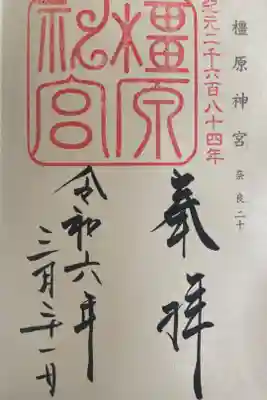 橿原神宮 奈良二十
紀元二千六百八十四年
橿原神宮
奉拝
令和六年
三月二十一日